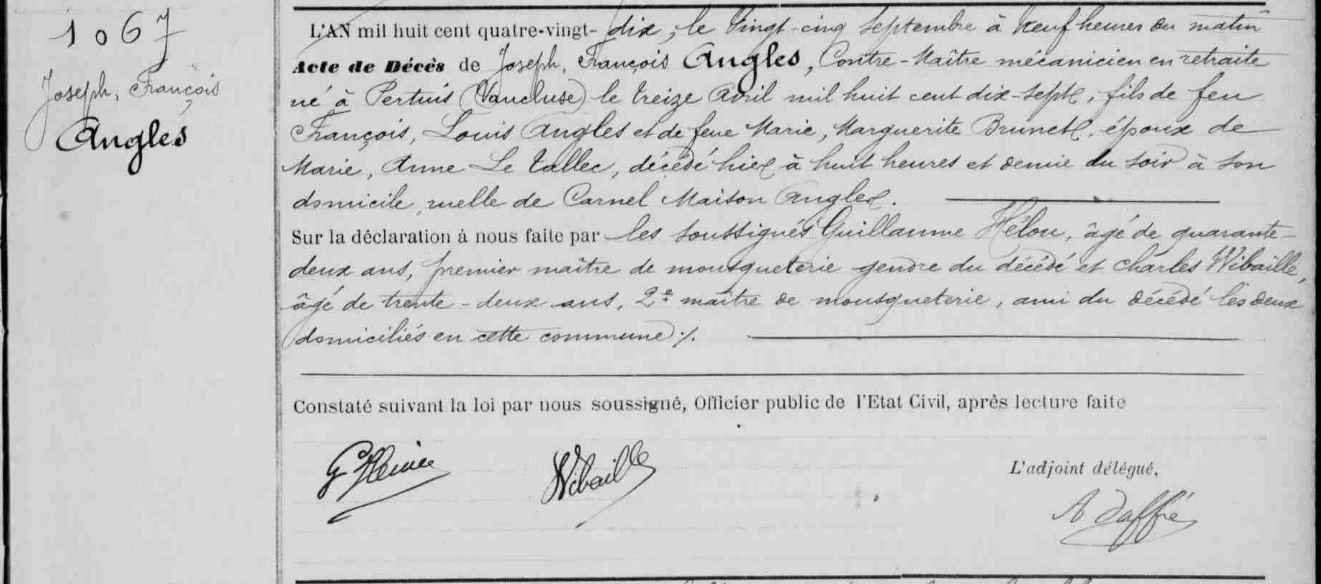 1067
Joseph, François
Angles
L'AN mil huit cent quatre-vingt-dix, le Vingt-cinq Septembre à Neuf heures du matin
Acte de Décès de Joseph, François Angles, Contre-Maître mécanicien en retraite
né à Pertuis (Vaucluse) le treize Avril mil huit cent dix-sept, fils de feu
François, Louis Angles et de feue Marie, Marguerite Brunet, époux de
Marie, Anne Le Tallec, décédé hier à huit heures et demie du soir à son
domicile ruelle de Carnel Maison Angles.
Sur la déclaration à nous faite par les soussignés Guillaume Hélou, âgé de quarante-
deux ans, premier maître de mousqueterie gendre du décédé et Charles Wibaille,
âgé de trente-deux ans, 2e maître de mousqueterie, ami du décédé les deux
domiciliés en cette commune ./.
Constaté suivant la loi par nous soussigné, Officier public de l'Etat Civil, après lecture faite
Wibaille
L'adjoint délégué,